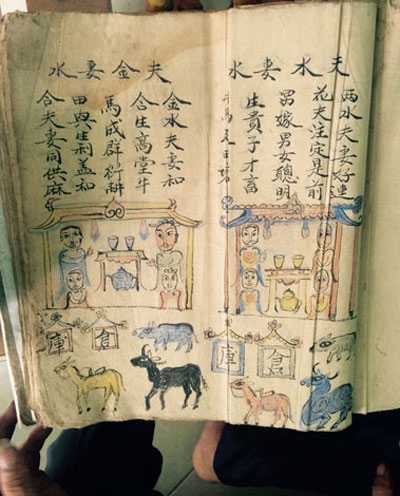 夫水妻水
兩水夫妻好連
花夫注定是前
嫁男女聰明
生貴子才畜
馬
倉
庫
夫金妻水
金水夫妻和
合生高堂牛
馬成群衍耕
田與生利益和
合夫妻同供麻
倉
庫